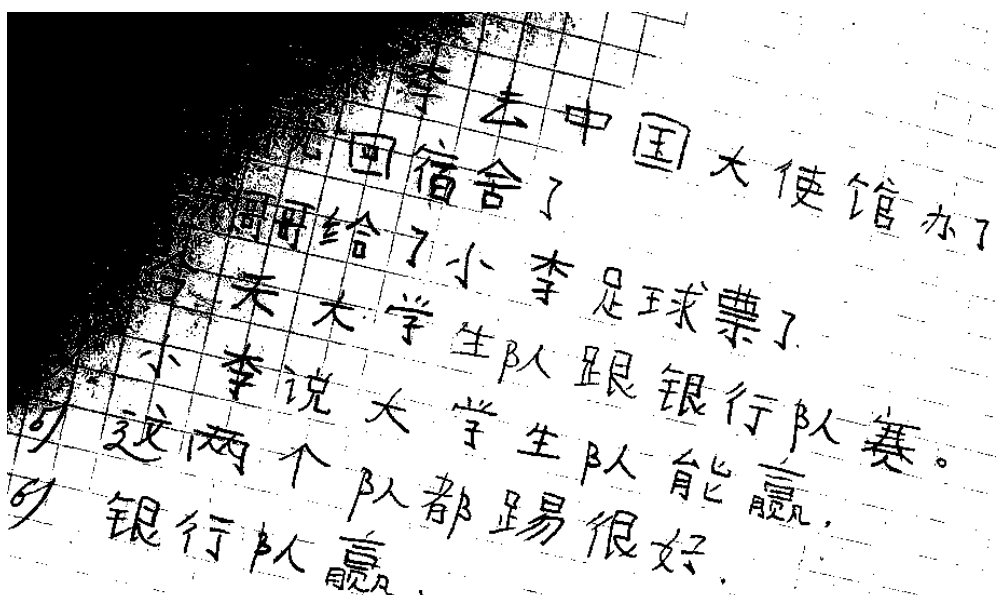 李去中国大使馆办了
回宿舍了
哥哥给了小李足球票了
今天大学生队跟银行队赛。
小李说大学生队能赢.
5) 这两个队都踢很好.
6) 银行队赢.